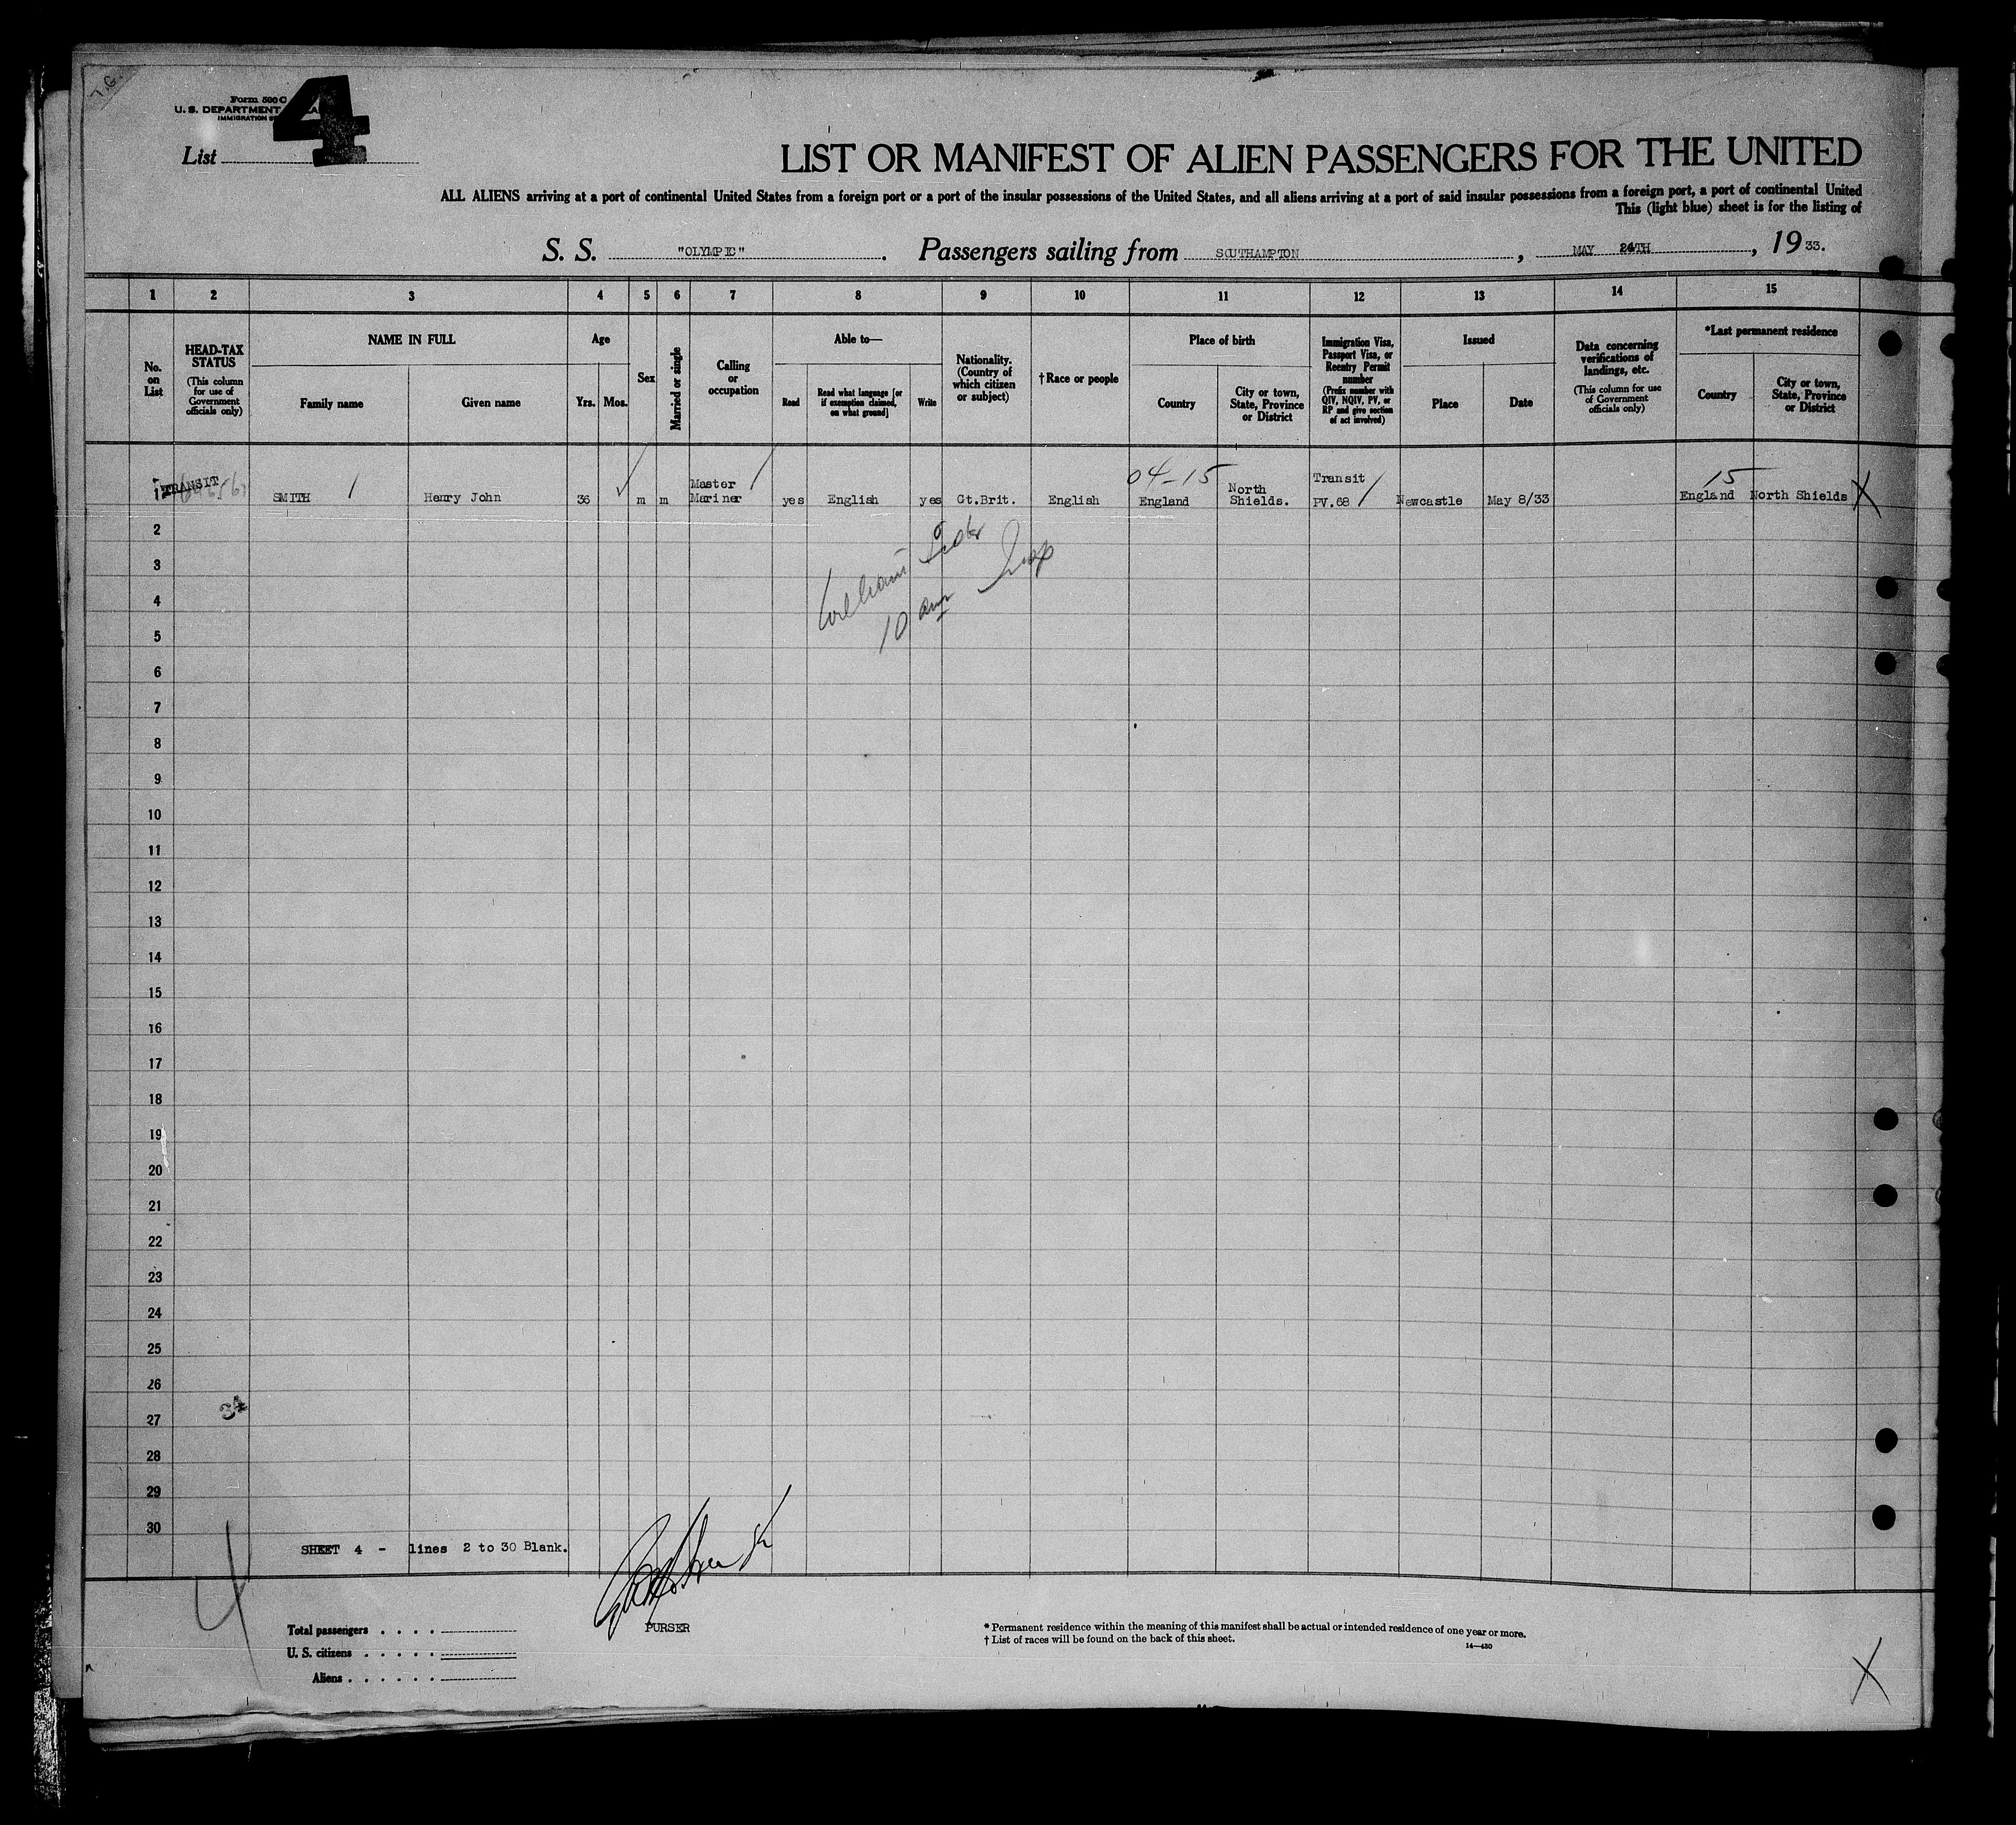 T.G.
Form 500 C
U. S. DEPARTMENT
IMMIGRATION
4
List
LIST OR MANIFEST OF ALIEN PASSENGERS FOR THE UNITED
ALL ALIENS arriving at a port of continental United States from a foreign port or a port of the insular possessions of the United States, and all aliens arriving at a port of said insular possessions from a foreign port, a port of continental United
This (light blue) sheet is for the listing of
S. S. "OLYMPIC". Passengers sailing from SOUTHAMPTON, MAY 24TH, 1933.
1 2 3 4 5 6 7 8 9 10 11 12 13 14 15
No. on List
HEAD-TAX STATUS
(This column for use of Government officials only)
NAME IN FULL
Family name
Given name
Age
Yrs. Mos.
Sex
Married or single
Calling or occupation
Able to—
Read
Read what language [or if exemption claimed, on what ground]
Write
Nationality. (Country of which citizen or subject)
† Race or people
Place of birth
Country
City or town, State, Province or District
Immigration Visa, Passport Visa, or Reentry Permit number
(Prefix number with QIV, NQIV, PV, or RP and give section of act involved)
Issued
Place
Date
Data concerning verifications of landings, etc.
(This column for use of Government officials only)
*Last permanent residence
Country
City or town, State, Province or District
04-15 15
1 TRANSIT SMITH Henry John 36 m m Master Mariner yes English yes Gt.Brit. English England North Shields. Transit PV.68 Newcastle May 8/33 England North Shields X
2
William
3
Insp
4
10 am
5
6
7
8
9
10
11
12
13
14
15
16
17
18
19
20
21
22
23
24
25
26
34
27
28
29
30
SHEET 4 - lines 2 to 30 Blank.
4
PURSER
Total passengers
U. S. citizens
Aliens
* Permanent residence within the meaning of this manifest shall be actual or intended residence of one year or more.
† List of races will be found on the back of this sheet.
14—430
X